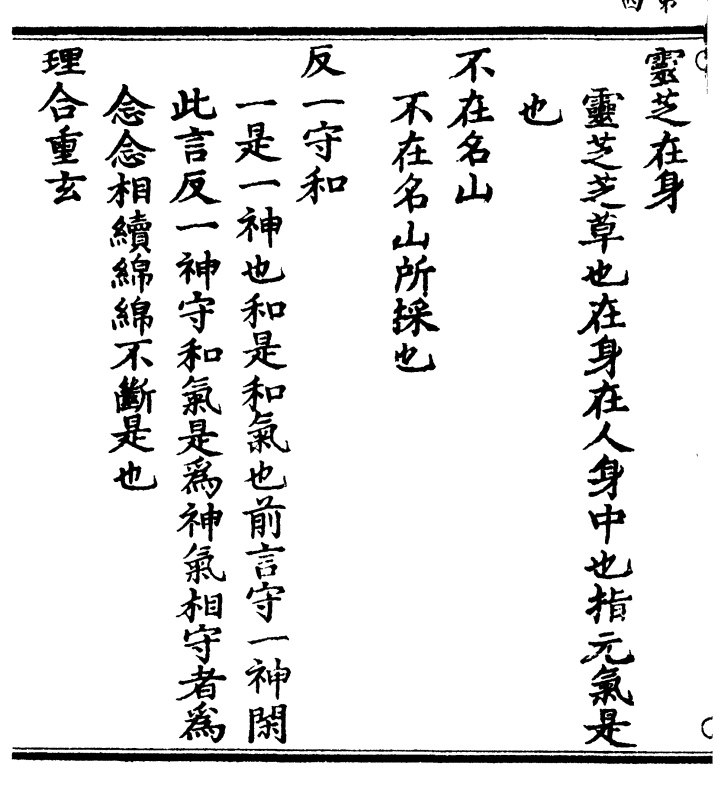 靈芝在身
靈芝芝草也在身在人身中也指元氣是
也
不在名山
不在名山所採也
反一守和
一是一神也和是和氣也前言守一神閑
此言反一神守和氣是爲神氣相守者爲
念念相續綿綿不斷是也
理合重玄